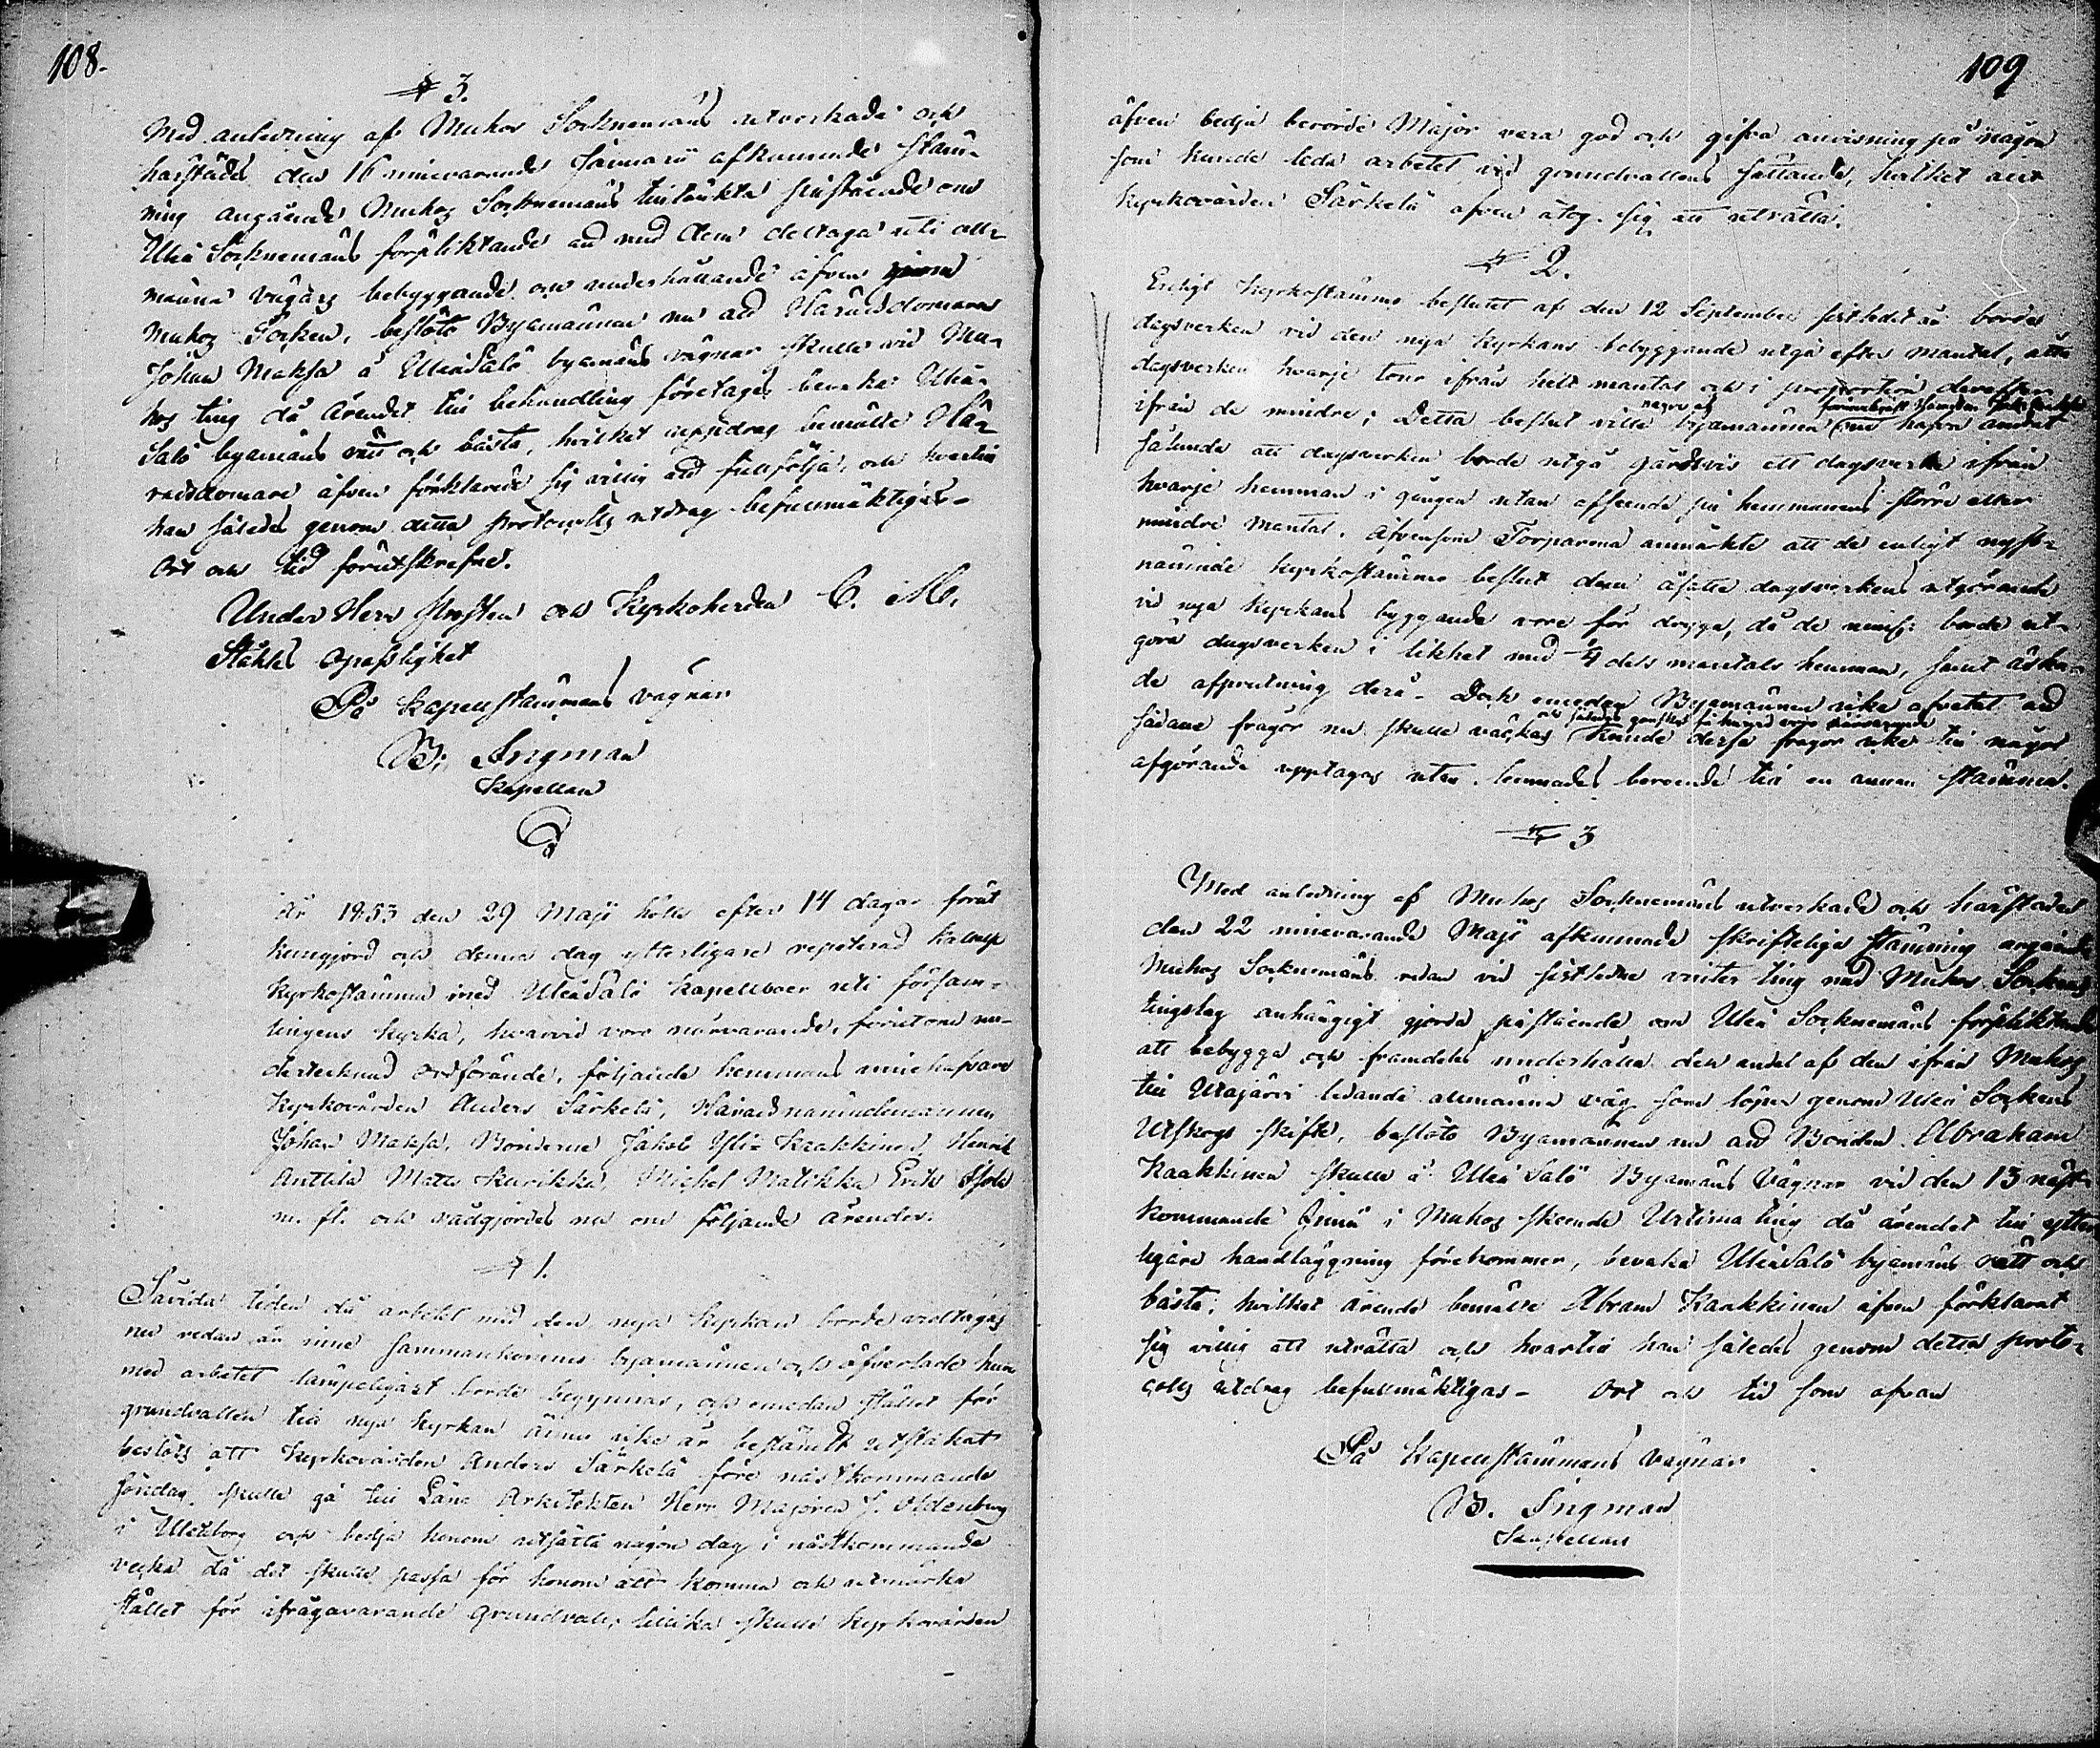 108.
§ 3.
Med anledning af Muhos Socknemäns utverkade och
härstädes den 16 innevarande Januarii afkunnade stäm-
ning angående Muhos Sockenmäns tilltänkta påstående om
Uleå Socknemäns förpliktande att med dem deltaga uti all-
männa vägars bebyggande och underhållande äfven genom
Muhos Socken, beslöto Byamännen nu att Häradsdomaren
Johan Maksa å Uleåsalo byamäns vägnar skulle vid Mu-
hos ting då ärendet till behandling företages bevaka Uleå-
salo byamäns rätt och bästa, hvilket uppdrag bemälte Hä-
radsdomare äfven förklarade sig villig att fullfölja, och hvartill
han således genom detta protocolls utdrag befullmäktigas.-
Ort och tid förutskrefne.
Under Herr Prosten och Kyrkoherden C. M.
Ståhles Opasslighet
På Kapellstämmans vägnar
B. Ingman
Kapellan
År 1853 den 29 Maji hölls efter 14 dagar förut
kungjord och denna dag ytterligare repeterad
Kyrkostämma med Uleåsalo Kapellboer uti försam-
lingens kyrka, hvarvid voro närvarande, förutom un-
dertecknad Ordförande, följande hemmans innehafvare
Kyrkovärden Anders Särkelä, Häradsnämndemannen
Johan Maksa, Bönderne Jakob Yli-Kaakkinen, Henrik
Anttila Matts Kurikka, Michel Matikka Erik
m. fl. och rådgjordes nu om följande ärender.
§ 1.
Såvida tiden då arbetet med den nya Kyrkan borde vidtagas
nu redan är inne sammankommo byamännen och öfverlade huru
med arbetet lämpeligast borde begynnas, och emedan stället för
grundvallen till nya kyrkan ännu icke är bestämdt utstakat
beslöts att Kyrkovärden Anders Särkelä före nästkommande
söndag, skulle gå till Läns Arkitekten Herr Majoren J. Oldenburg
i Uleåborg och bedja honom utsätta någon dag i nästkommande
vecka då det skulle passa för honom att komma och utmärka
stället för ifrågavarande grundvall, tillika skulle kyrkovärden
109
äfven bedja berörde Major vara god och gifva anvisning på någon
som kunde leda arbetet vid grundvallens sättande, hvilket allt
Kyrkovärden Särkelä äfven åtog sig att uträtta.
§ 2.
Enligt Kyrkostämmo beslutet af den 12 September sistledit år borde
dagsverken vid den nya Kyrkans bebyggande utgå efter mantal, åtta
dagsverken hvarje tour ifrån helt mantal och i proportion derefter
ifrån de mindre; Detta beslut ville några af byamännen nu hafva ändrat
sålunda att dagsverken borde utgå gårdsvis ett dagsverke ifrån
hvarje hemman i gången utan afseende på hemmanens större eller
mindre mantal. Äfvensom Torparena anmärkte att de enligt nyss-
nämnde kyrkostämmo beslut dem åsatte dagsverkens utgörande
vid nya Kyrkans byggande vore för dryga, då de nemligen borde ut-
göra dagsverken i likhet med ¼ dels mantals hemman, samt äska-
de afprutning derå.- Dock emedan Byamännen icke afvetat att
sådane frågor nu skulle väckas och således ganska få hunnit vara närvarande
kunde dessa frågor icke till något
afgörande upptagas utan lemnades beroende till en annan stämma.
§ 3
Med anledning af Muhos Socknemäns utverkade och härstädes
den 22 innevarande Maji afkunnade skriftliga stämning angående
Muhos Socknemäns redan vid sistledne vinter ting med Muhos Sockens
tingslag anhängigt gjorda påstående om Uleå Socknemäns förpliktande
att bebygga och framdeles underhålla den andel af den ifrån Muhos
till Utajärvi ledande allmänna väg som löper genom Uleå Sockens
Utskogs skifte, beslöto Byamännen nu att Bonden Abraham
Kaakkinen skulle å Uleå Salo Byamäns Vägnar vid den 13 näst-
kommande Junii i Muhos skeende Urtima ting då ärendet till ytter-
ligare handläggning förekommer, bevaka Uleåsalo byamäns rätt och
bästa, hvilket ärende bemälte Abram Kaakkinen äfven förklarat
sig villig att uträtta och hvartill han således genom detta proto-
colls utdrag befullmäktigas - Ort och tid som ofvan
På Kapellstämmans vägnar
B. Ingman
Kapellan